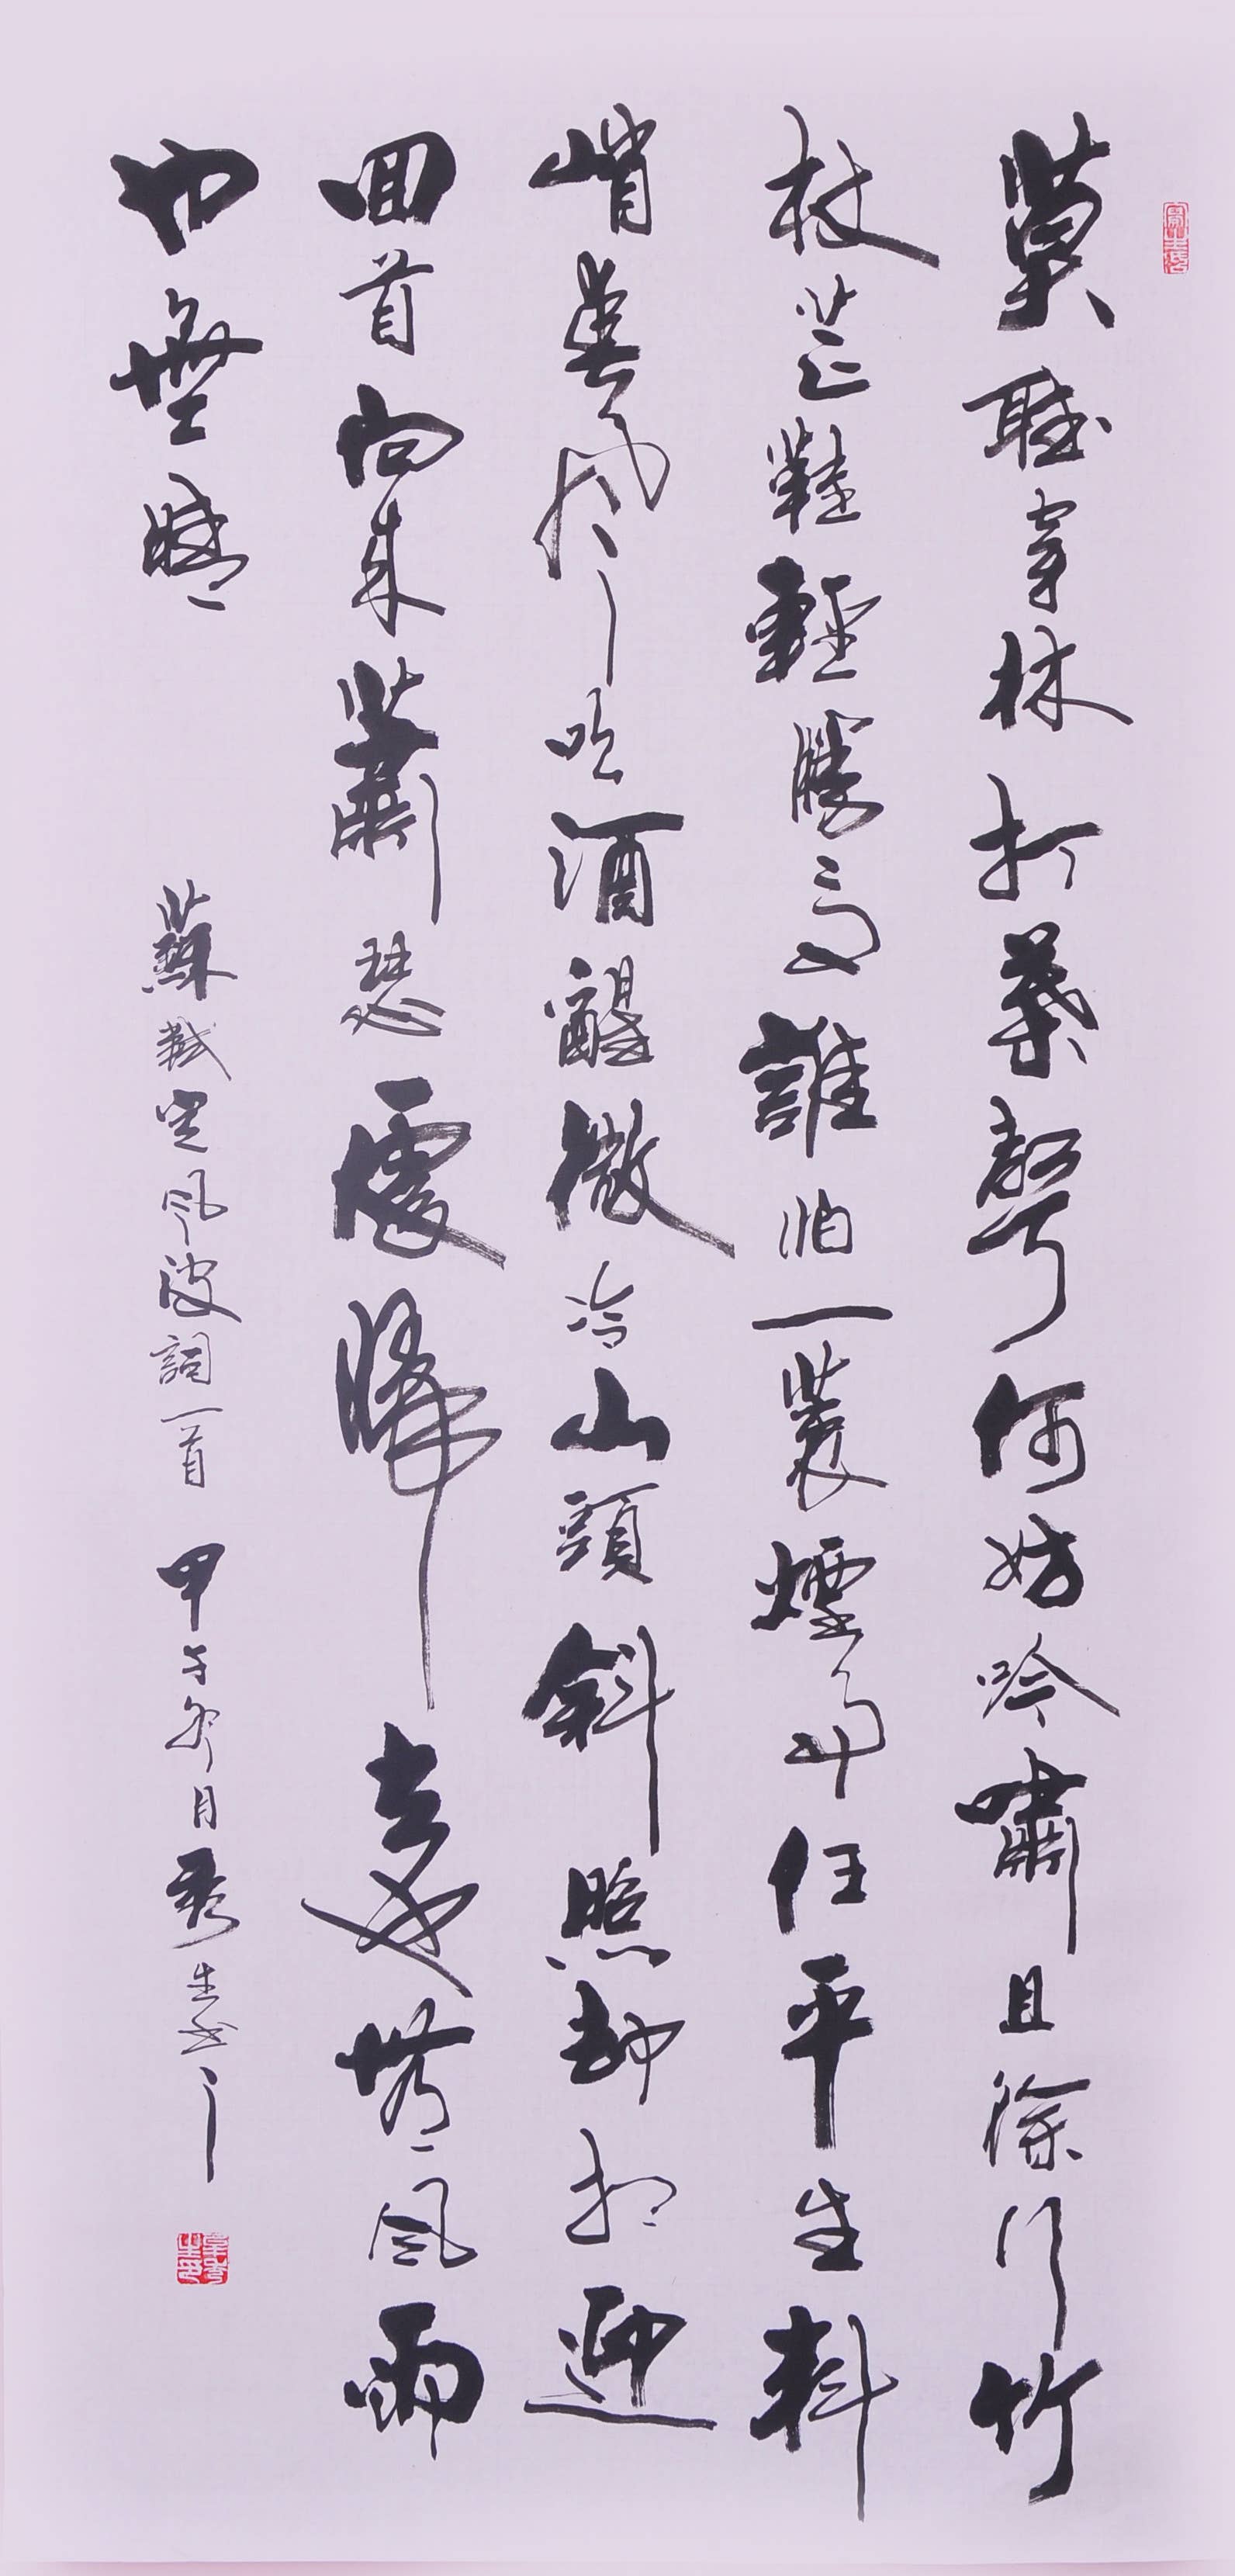 莫聽穿林打葉聲何妨吟嘯且徐行竹
杖芒鞋輕勝馬誰怕一蓑煙雨任平生料
峭春風吹酒醒微冷山頭斜照却相迎
回首向來蕭瑟處歸去也無風雨
也無晴
蘇軾定風波詞一首 甲午冬月秀生書